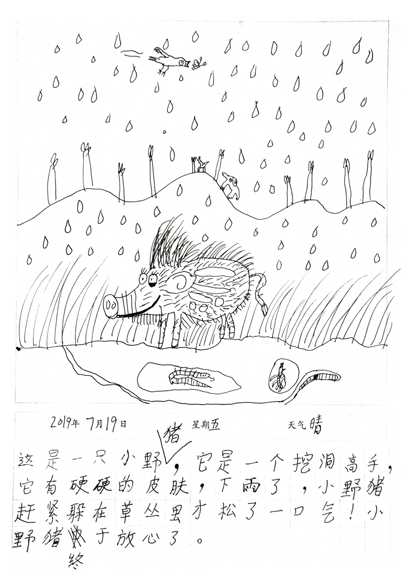 2019年 7月19日 星期五 天气 晴
这是一只小野猪，它是一个挖洞高手，
它有硬硬的皮肤，下雨了，小野猪
赶紧躲在草丛里才松了一口气！小
野猪终于放心了。